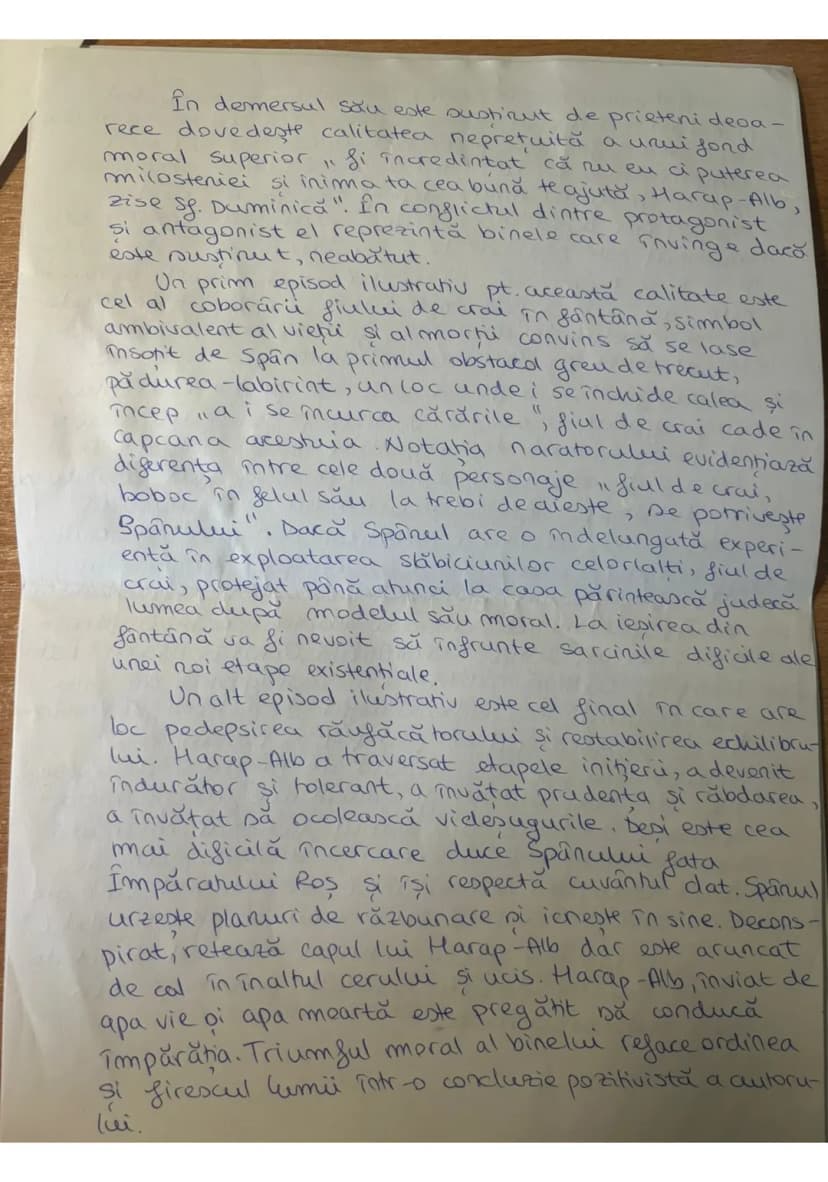 În demersul său este susținut de prieteni deoa-
rece dovedește calitatea neprețuită a unui fond
moral superior „fi încredințat că nu eu ci puterea
milosteniei și inima ta cea bună te ajută, Harap-Alb,
zise Sf. Duminică". În conflictul dintre protagonist
și antagonist el reprezintă binele care învinge dacă
este susținut, neabătut.
Un prim episod ilustrativ pt. această calitate este
cel al coborârii fiului de crai în fântână, simbol
ambivalent al vieții și al morții convins să se lase
însoțit de Spân la primul obstacol greu de trecut,
pădurea-labirint, un loc unde i se închide calea și
încep „a i se încurca cărările", fiul de crai cade în
capcana acestuia. Notația naratorului evidențiază
diferența între cele două personaje „fiul de crai,
boboc în felul său la trebi de aieste, se potrivește
Spânului". Dacă Spânul are o îndelungată experi-
ență în exploatarea slăbiciunilor celorlalți, fiul de
crai, protejat până atunci la casa părintească judecă
lumea după modelul său moral. La ieșirea din
fântână va fi nevoit să înfrunte sarcinile dificile ale
unei noi etape existențiale.
Un alt episod ilustrativ este cel final în care are
loc pedepsirea răufăcătorului și restabilirea echilibru-
lui. Harap-Alb a traversat etapele inițierii, a devenit
îndurător și tolerant, a învățat prudența și răbdarea,
a învățat să ocolească vicleșugurile. Deși este cea
mai dificilă încercare duce Spânului fata
Împăratului Roș și își respectă cuvântul dat. Spânul
urzește planuri de răzbunare și icnește în sine. Decons-
pirat, retează capul lui Harap-Alb dar este aruncat
de cal în înaltul cerului și ucis. Harap-Alb, înviat de
apa vie și apa moartă este pregătit să conducă
împărăția. Triumful moral al binelui reface ordinea
și firescul lumii într-o concluzie pozitivistă a autoru-
lui.